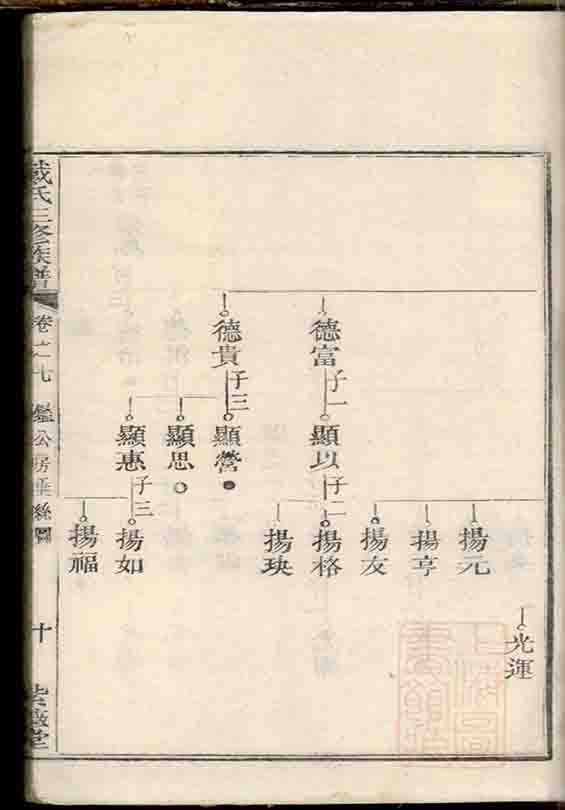 戴氏三修族譜
卷之七
鑑公房垂絲圖
十
光運
揚元
揚亨
揚友
德富
子一
顯以
子二
揚格
揚玦
德貴
子三
顯營
顯思
顯惠
子三
揚如
揚福